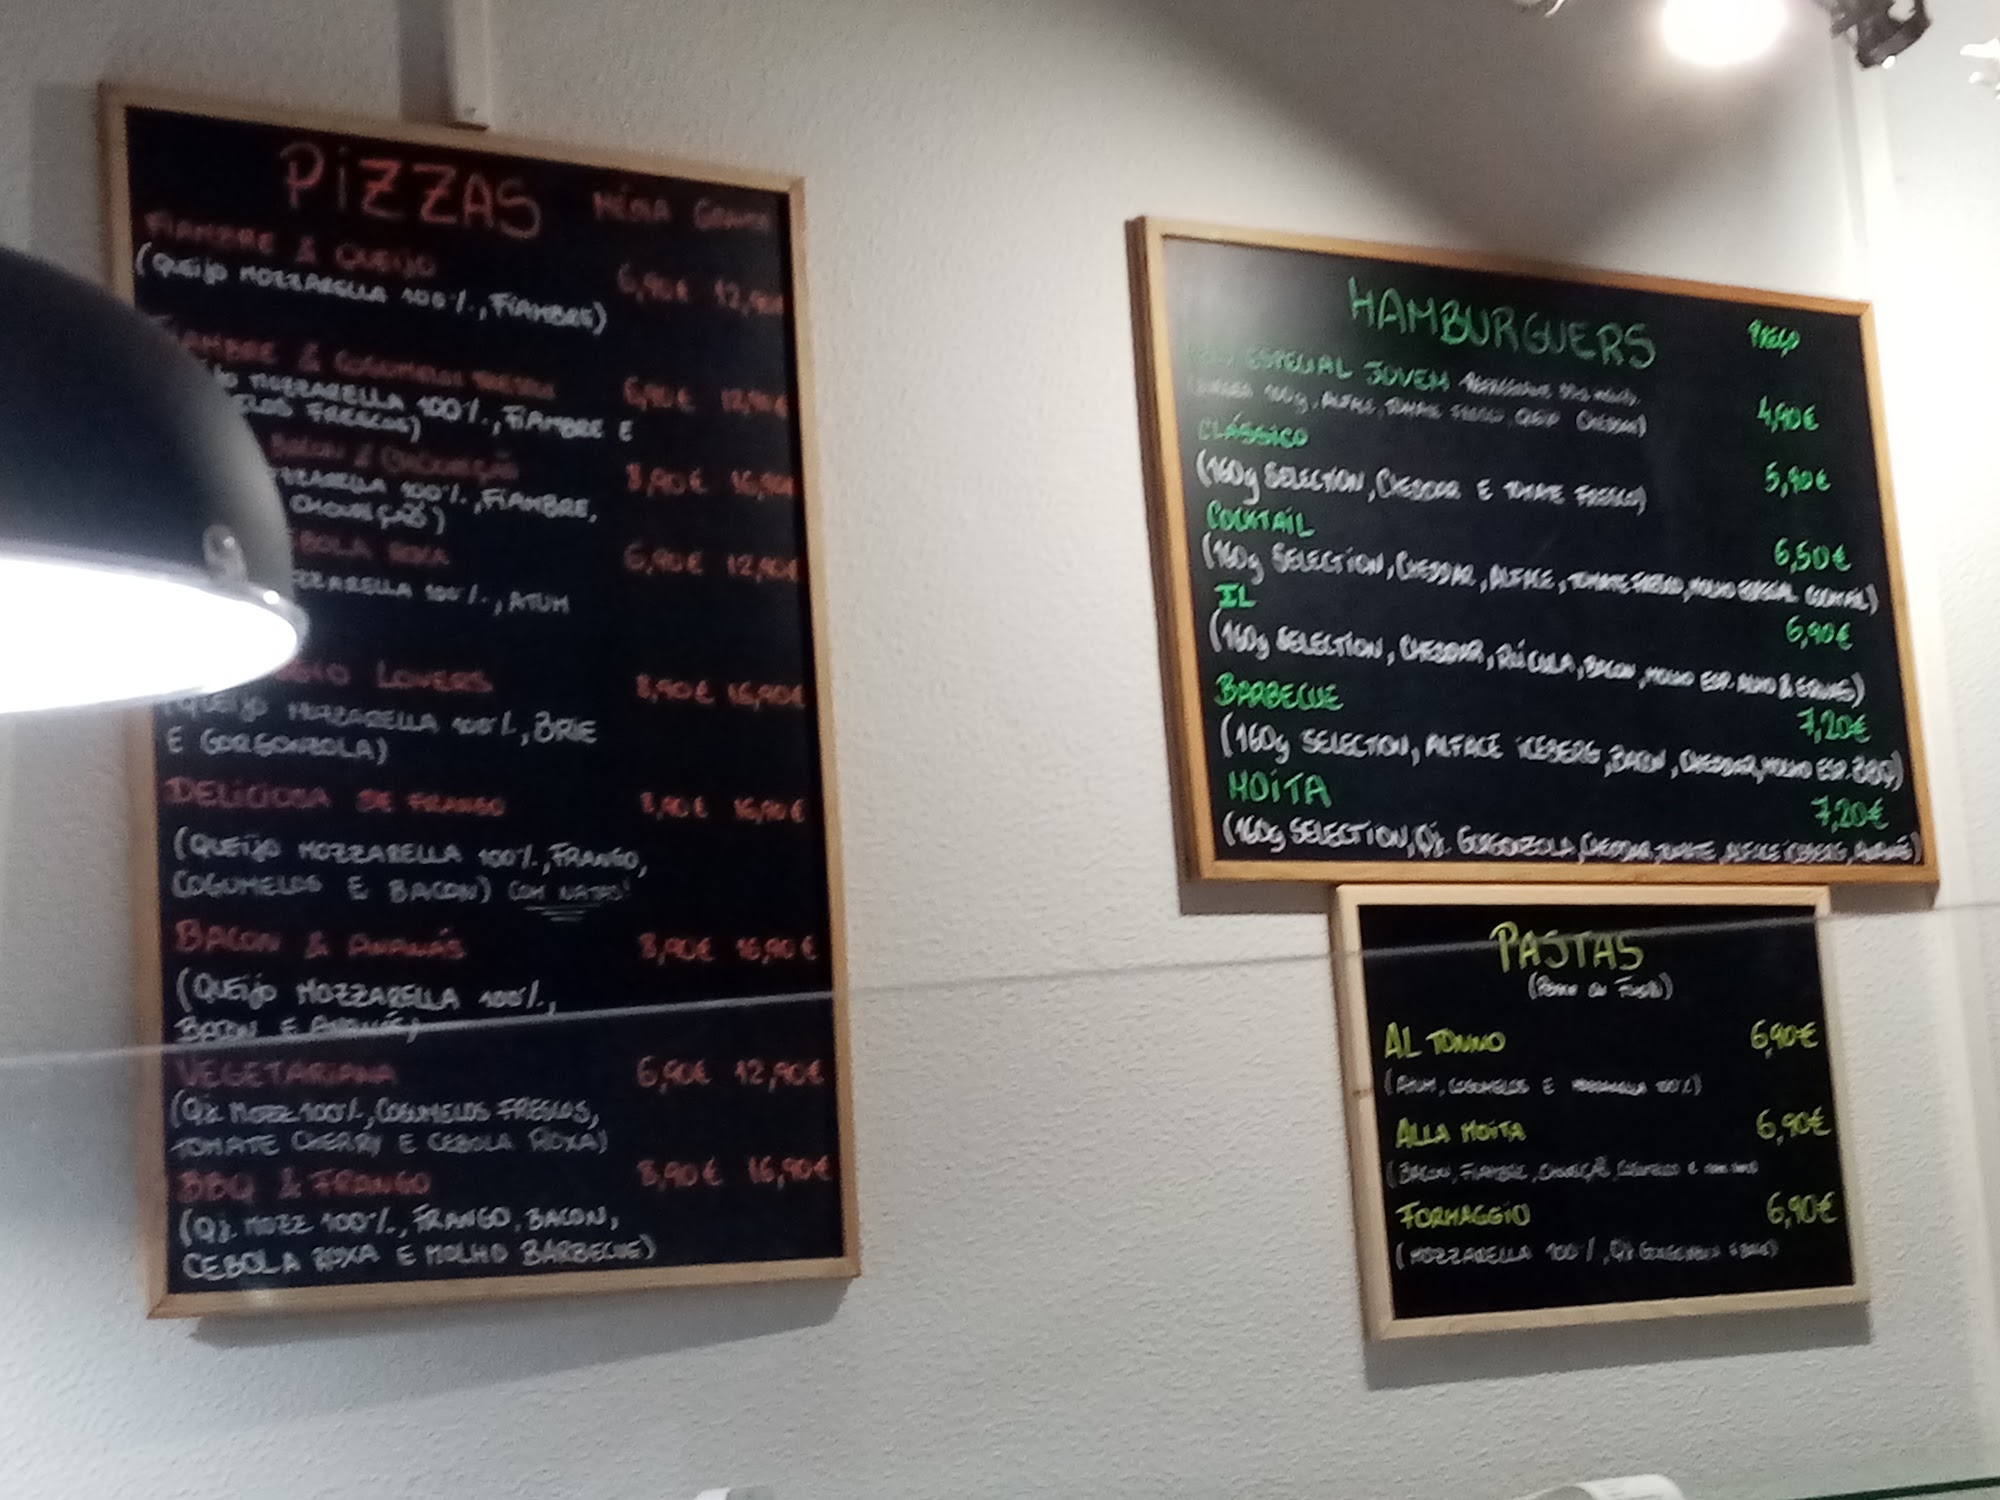 PIZZAS MÉDIA GRANDE
FIAMBRE & QUEIJO
6,90€ 12,90€
(QUEIJO MOZZARELLA 100%, FIAMBRE)
& COGUMELOS FRESCOS 6,90€ 12,90€
MOZZARELLA 100%, FIAMBRE E
FRESCOS)
BACON & CHOURIÇÃO 8,90€ 16,90€
100%, FIAMBRE,
CHOURIÇÃO)
ROXA 6,90€ 12,90€
100%, ATUM
LOVERS 8,90€ 16,90€
(QUEIJO MOZZARELLA 100%, BRIE
E GORGONZOLA)
DELICIOSA DE FRANGO 8,90€ 16,90€
(QUEIJO MOZZARELLA 100%, FRANGO,
COGUMELOS E BACON) COM NATAS!
BACON & ANANÁS 8,90€ 16,90€
(QUEIJO MOZZARELLA 100%,
BACON E ANANÁS)
VEGETARIANA 6,90€ 12,90€
(QJ. MOZZ 100%, COGUMELOS FRESCOS,
TOMATE CHERRY E CEBOLA ROXA)
BBQ & FRANGO 8,90€ 16,90€
(QJ. MOZZ 100%, FRANGO, BACON,
CEBOLA ROXA E MOLHO BARBECUE)
HAMBURGUERS PREÇO
ESPECIAL JOVEM
4,90€
100g, ALFACE, TOMATE FRESCO, QUEIJO CHEDDAR)
CLÁSSICO 5,90€
(160g SELECTION, CHEDDAR E TOMATE FRESCO)
COCKTAIL 6,50€
(160g SELECTION, CHEDDAR, ALFACE, TOMATE FRESCO, MOLHO ESPECIAL COCKTAIL)
IL 6,90€
(160g SELECTION, CHEDDAR, RÚCULA, BACON, MOLHO ESP. ALHO & ERVAS)
BARBECUE 7,20€
(160g SELECTION, ALFACE ICEBERG, BACON, CHEDDAR, MOLHO ESP. BBQ)
MOITA 7,20€
(160g SELECTION, QJ. GORGONZOLA, CHEDDAR, TOMATE, ALFACE ICEBERG, ANANÁS)
PASTAS
(PENNE OU FUSILLI)
AL TONNO 6,90€
(ATUM, COGUMELOS E MOZZARELLA 100%)
ALLA MOITA 6,90€
(BACON, FIAMBRE, CHOURIÇÃO, COGUMELOS E
FORMAGGIO 6,90€
(MOZZARELLA 100%, QJ GORGONZOLA E BRIE)